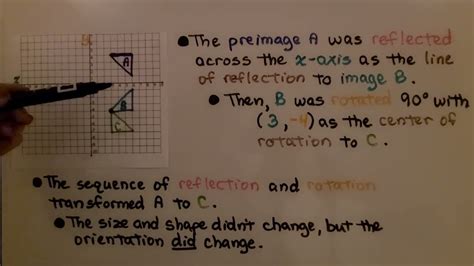 A
B
C
• The preimage A was reflected
across the x-axis as the line
of reflection to image B.
• Then, B was rotated 90° with
(3, -4) as the center of
rotation to C.
• The sequence of reflection and rotation
transformed A to C.
• The size and shape didn't change, but the
orientation did change.